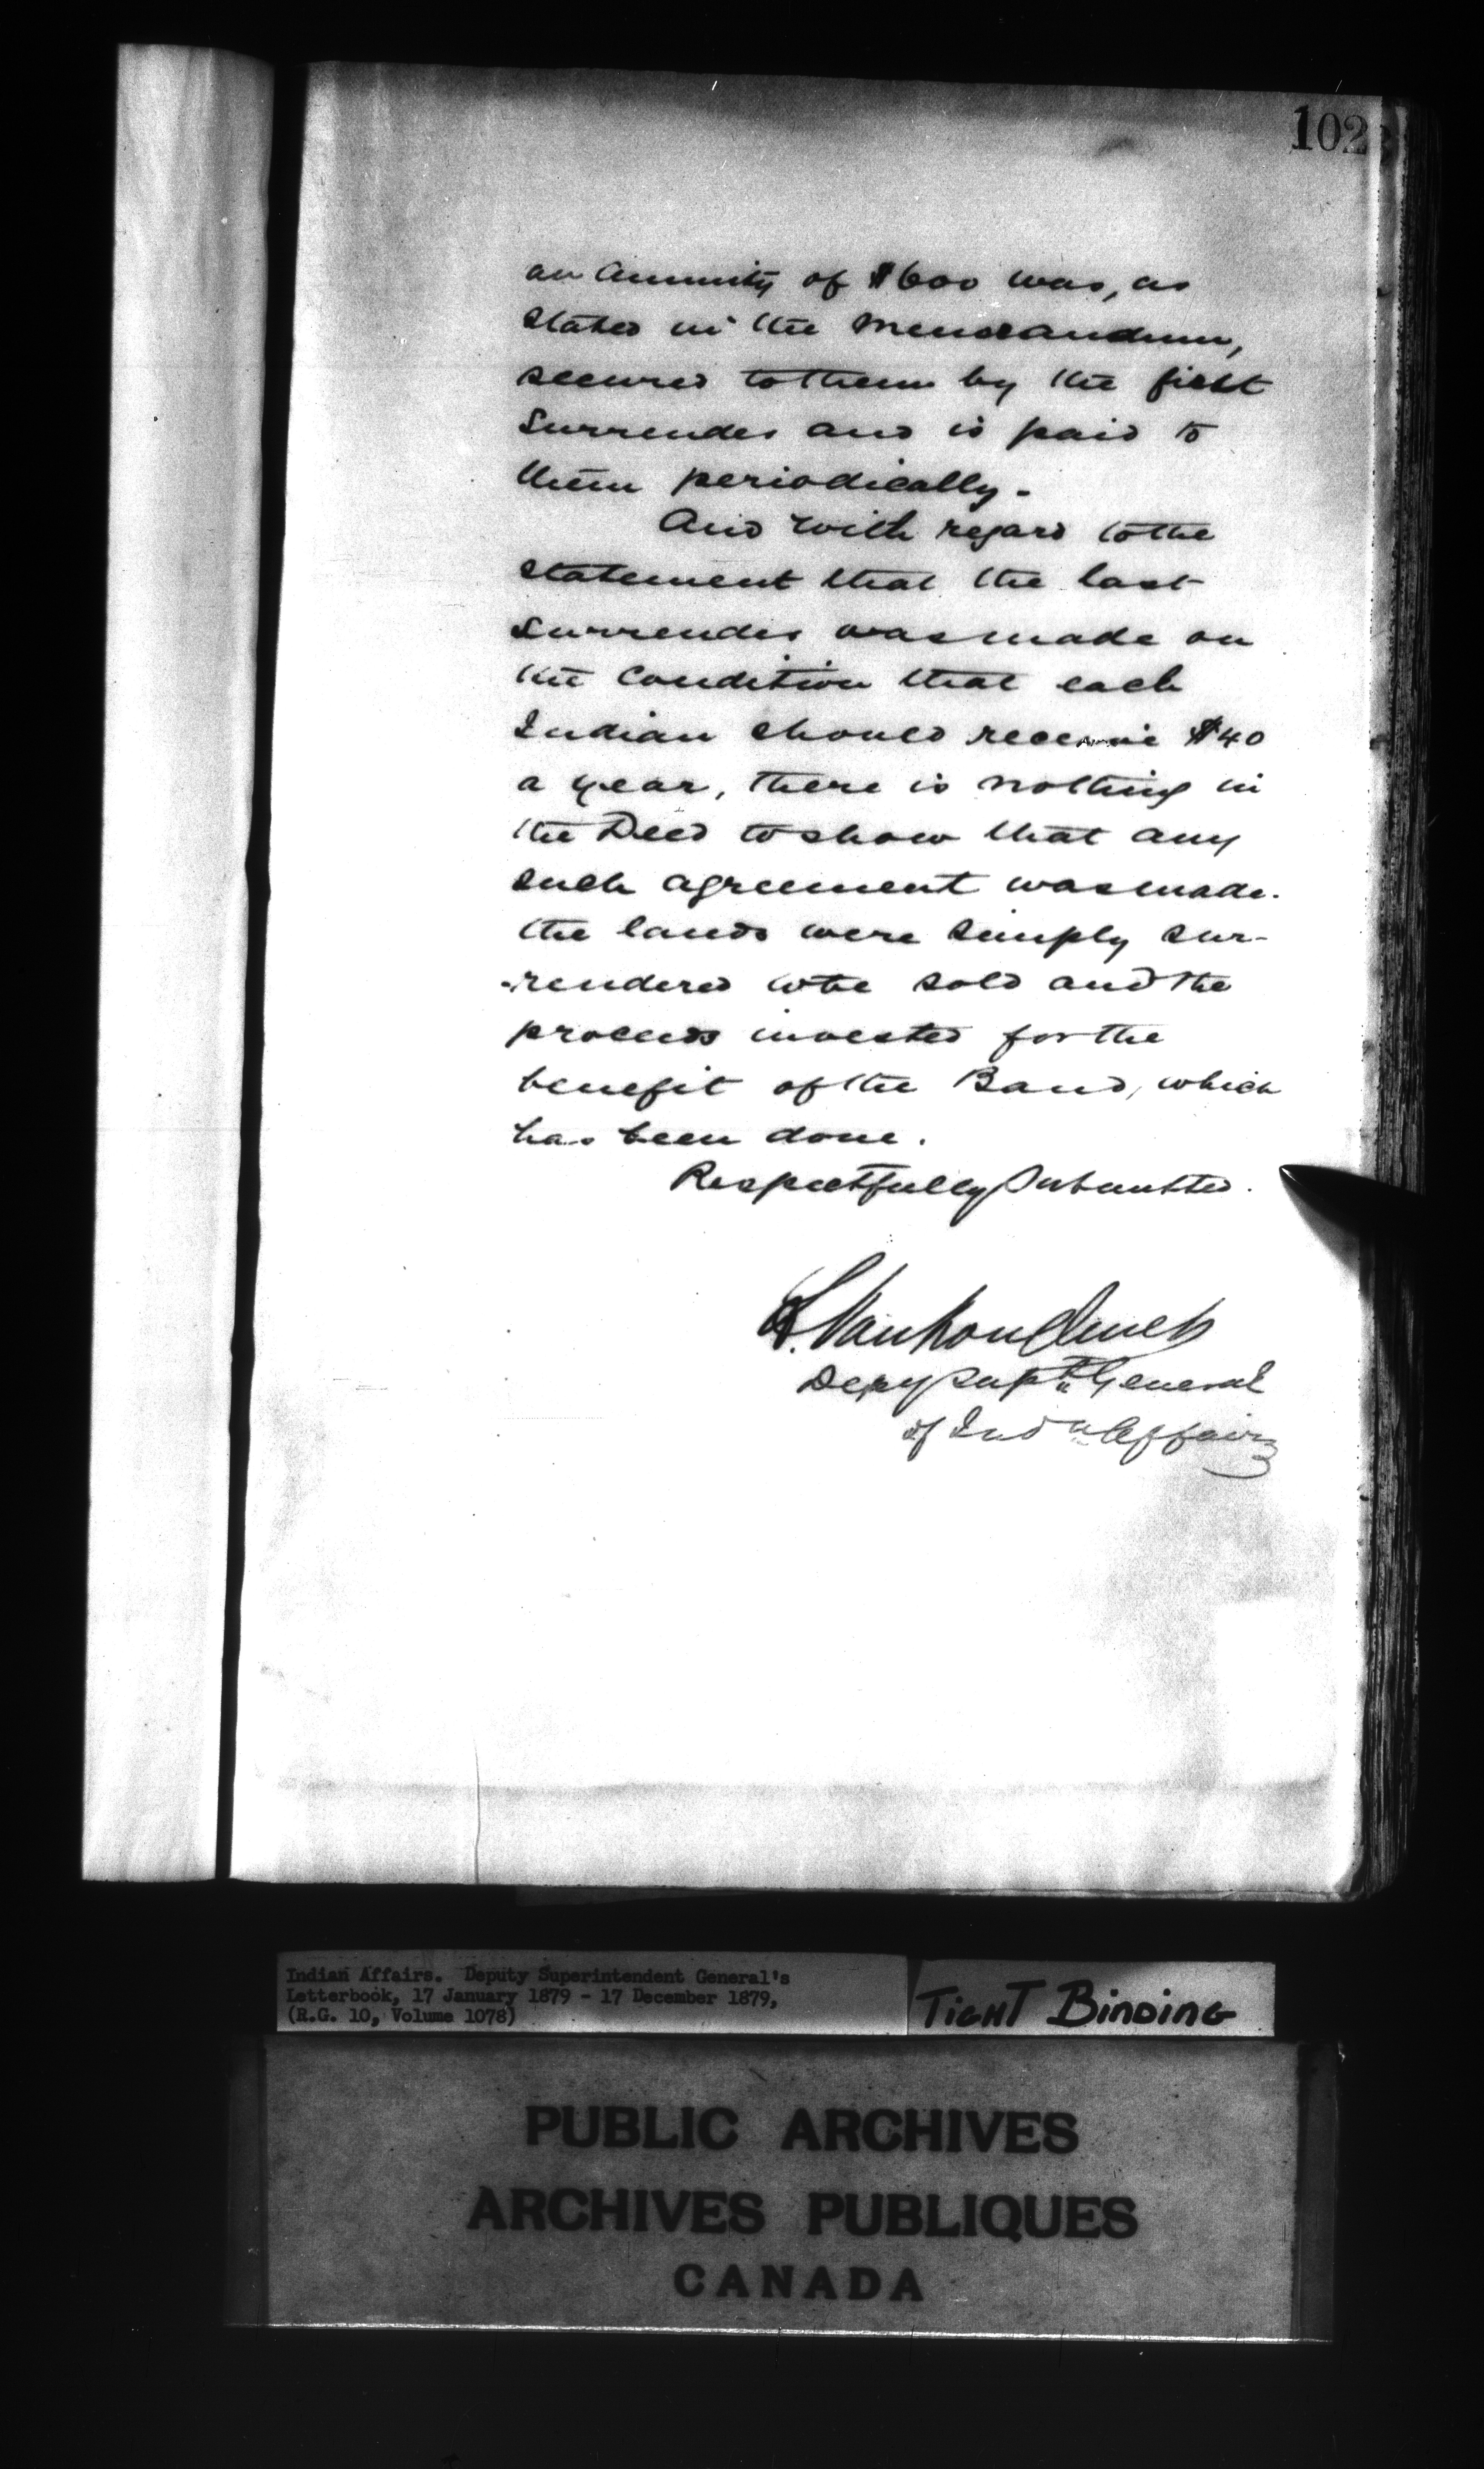 102
an Annuity of $600 was, as
stated in the Memorandum,
secured to them by the first
Surrender and is paid to
them periodically.
And with regard to the
statement that the last
surrender was made on
the Condition that each
Indian should receive $40
a year, there is nothing in
the Deed to show that any
such agreement was made.
the lands were simply sur-
-rendered to be sold and the
proceeds invested for the
benefit of the Band, which
has been done.
Respectfully Submitted.
L. VanKoughnet
Depy Supt Genl General
of Indn Affairs
Indian Affairs. Deputy Superintendent General's
Letterbook, 17 January 1879 - 17 December 1879,
(R.G. 10, Volume 1078)
TIGHT BINDING
PUBLIC ARCHIVES
ARCHIVES PUBLIQUES
CANADA